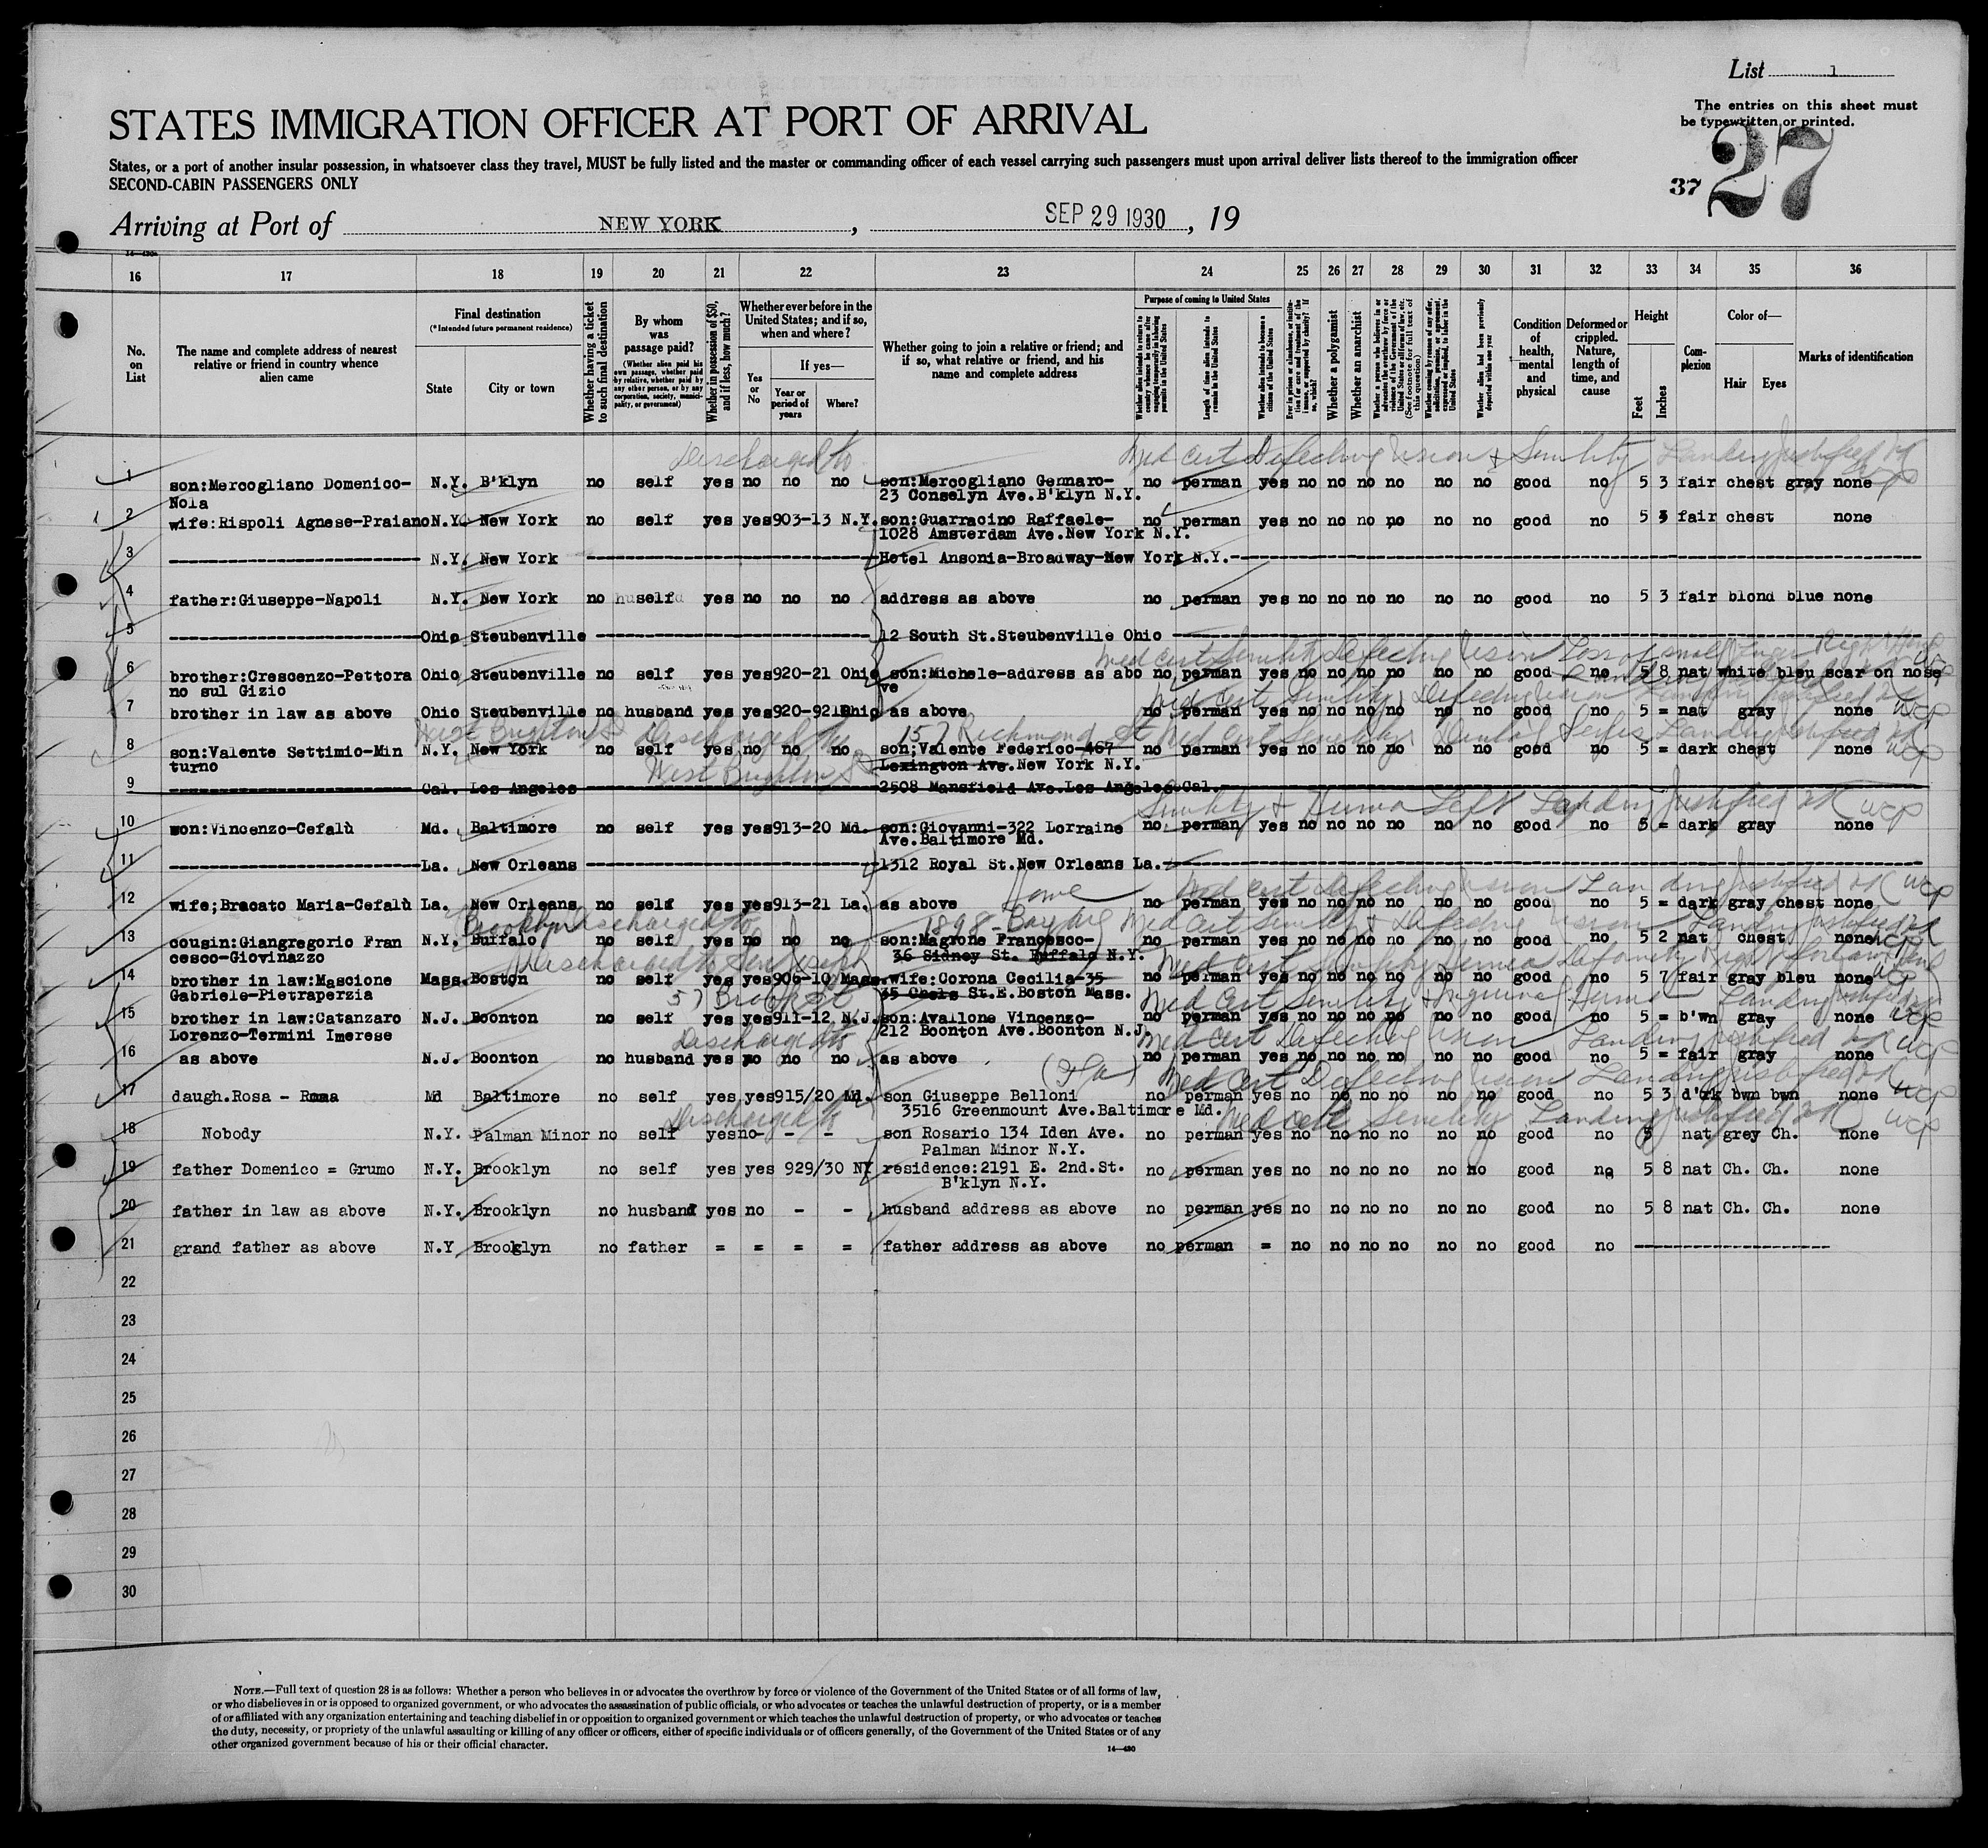 List 1
The entries on this sheet must
be typewritten or printed.
37 27
STATES IMMIGRATION OFFICER AT PORT OF ARRIVAL
States, or a port of another insular possession, in whatsoever class they travel, MUST be fully listed and the master or commanding officer of each vessel carrying such passengers must upon arrival deliver lists thereof to the immigration officer
SECOND-CABIN PASSENGERS ONLY
Arriving at Port of NEW YORK, SEP 29 1930, 19
16 17 18 19 20 21 22 23 24 25 26 27 28 29 30 31 32 33 34 35 36
No. on List
The name and complete address of nearest relative or friend in country whence alien came
Final destination
(*Intended future permanent residence)
State
City or town
Whether having a ticket to such final destination
By whom was passage paid?
(Whether alien paid his own passage, whether paid by relative, whether paid by any other person, or by any corporation, society, municipality, or government)
Whether in possession of $50, and if less, how much?
Whether ever before in the United States; and if so, when and where?
Yes or No
If yes—
Year or period of years
Where?
Whether going to join a relative or friend; and if so, what relative or friend, and his name and complete address
Purpose of coming to United States
Length of time alien intends to remain in the United States
Whether alien intends to become a citizen of the United States
Whether a polygamist
Whether an anarchist
Condition of health, mental and physical
Deformed or crippled. Nature, length of time, and cause
Height
Feet
Inches
Complexion
Color of—
Hair
Eyes
Marks of identification
Discharged to Med Cert Defective Vision & Senility Landing Justified
1 son:Mercogliano Domenico- N.Y. B'klyn no self yes no no no son:Mercogliano Gennaro- no perman yes no no no no no no good no 5 3 fair chest gray none
Nola 23 Conselyn Ave.B'klyn N.Y.
2 wife:Rispoli Agnese-Praiano N.Y. New York no self yes yes 903-13 N.Y. son:Guarracino Raffaele- no perman yes no no no no no no good no 5 3 fair chest none
1028 Amsterdam Ave.New York N.Y.
3 N.Y. New York Hotel Ansonia-Broadway-New York N.Y.
4 father:Giuseppe-Napoli N.Y. New York no self yes no no no address as above no perman yes no no no no no no good no 5 3 fair blond blue none
5 Ohio Steubenville 12 South St.Steubenville Ohio
Med Cert Senility Defective Vision Loss of small finger Right Hand
6 brother:Crescenzo-Pettora Ohio Steubenville no self yes yes 920-21 Ohio son:Michele-address as abo no perman yes no no no no no no good no 5 8 nat white bleu scar on nose
no sul Gizio ve
Med Cert Senility Defective Vision Landing Justified
7 brother in law as above Ohio Steubenville no husband yes yes 920-921 Ohio as above no perman yes no no no no no no good no 5 = nat gray none
West Brighton Discharged to 157 Richmond St Med Cert Senility Landing Justified
8 son:Valente Settimio-Min N.Y. New York no self yes no no no son:Valente Federico-467 no perman yes no no no no no no good no 5 = dark chest none
turno Lexington Ave.New York N.Y.
West Brighton
9 Cal. Los Angeles 2508 Mansfield Ave.Los Angeles Cal.
Senility & Hernia Left Landing Justified
10 son:Vincenzo-Cefalù Md. Baltimore no self yes yes 913-20 Md. son:Giovanni-322 Lorraine no perman yes no no no no no no good no 5 = dark gray none
Ave.Baltimore Md.
11 La. New Orleans 1312 Royal St.New Orleans La.
Med Cert Defective Vision Landing Justified
12 wife;Bracato Maria-Cefalù La. New Orleans no self yes yes 913-21 La. as above no perman yes no no no no no no good no 5 = dark gray chest none
Brooklyn Discharged to 1898 - Bay Med Cert Senility & Defective Vision Landing Justified
13 cousin:Giangregorio Fran N.Y. Buffalo no self yes no no no son:Magrone Francesco- no perman yes no no no no no no good no 5 2 nat chest none
cesco-Giovinazzo 36 Sidney St. Buffalo N.Y.
Discharged to Med Cert Senility Hernia
14 brother in law:Mascione Mass. Boston no self yes yes 906-10 Mass. wife:Corona Cecilia-35 no perman yes no no no no no no good no 5 7 fair gray bleu none
Gabriele-Pietraperzia 35 Chels St.E.Boston Mass.
Med Cert Senility & Inguinal Hernia Landing Justified
15 brother in law:Catanzaro N.J. Boonton no self yes yes 911-12 N.J. son:Avallone Vincenzo- no perman yes no no no no no no good no 5 = b'wn gray none
Lorenzo-Termini Imerese 212 Boonton Ave.Boonton N.J.
Discharged to Med Cert Defective Vision Landing Justified
16 as above N.J. Boonton no husband yes no no no as above no perman yes no no no no no no good no 5 = fair gray none
Med Cert Defective Vision Landing Justified
17 daugh.Rosa - Roma Md Baltimore no self yes yes 915/20 Md. son Giuseppe Belloni no perman yes no no no no no no good no 5 3 d'rk bwn bwn none
3516 Greenmount Ave.Baltimore Md.
Discharged to Med Cert Senility Landing Justified
18 Nobody N.Y. Palman Minor no self yes no - - - son Rosario 134 Iden Ave. no perman yes no no no no no no good no 5 nat grey Ch. none
Palman Minor N.Y.
19 father Domenico = Grumo N.Y. Brooklyn no self yes yes 929/30 NY residence:2191 E. 2nd.St. no perman yes no no no no no no good no 5 8 nat Ch. Ch. none
B'klyn N.Y.
20 father in law as above N.Y. Brooklyn no husband yes no - - husband address as above no perman yes no no no no no no good no 5 8 nat Ch. Ch. none
21 grand father as above N.Y Brooklyn no father = = = = father address as above no perman = no no no no no no good no
22
23
24
25
26
27
28
29
30
NOTE.—Full text of question 28 is as follows: Whether a person who believes in or advocates the overthrow by force or violence of the Government of the United States or of all forms of law,
or who disbelieves in or is opposed to organized government, or who advocates the assassination of public officials, or who advocates or teaches the unlawful destruction of property, or is a member
of or affiliated with any organization entertaining and teaching disbelief in or opposition to organized government or which teaches the unlawful destruction of property, or who advocates or teaches
the duty, necessity, or propriety of the unlawful assaulting or killing of any officer or officers, either of specific individuals or of officers generally, of the Government of the United States or of any
other organized government because of his or their official character.
14—430